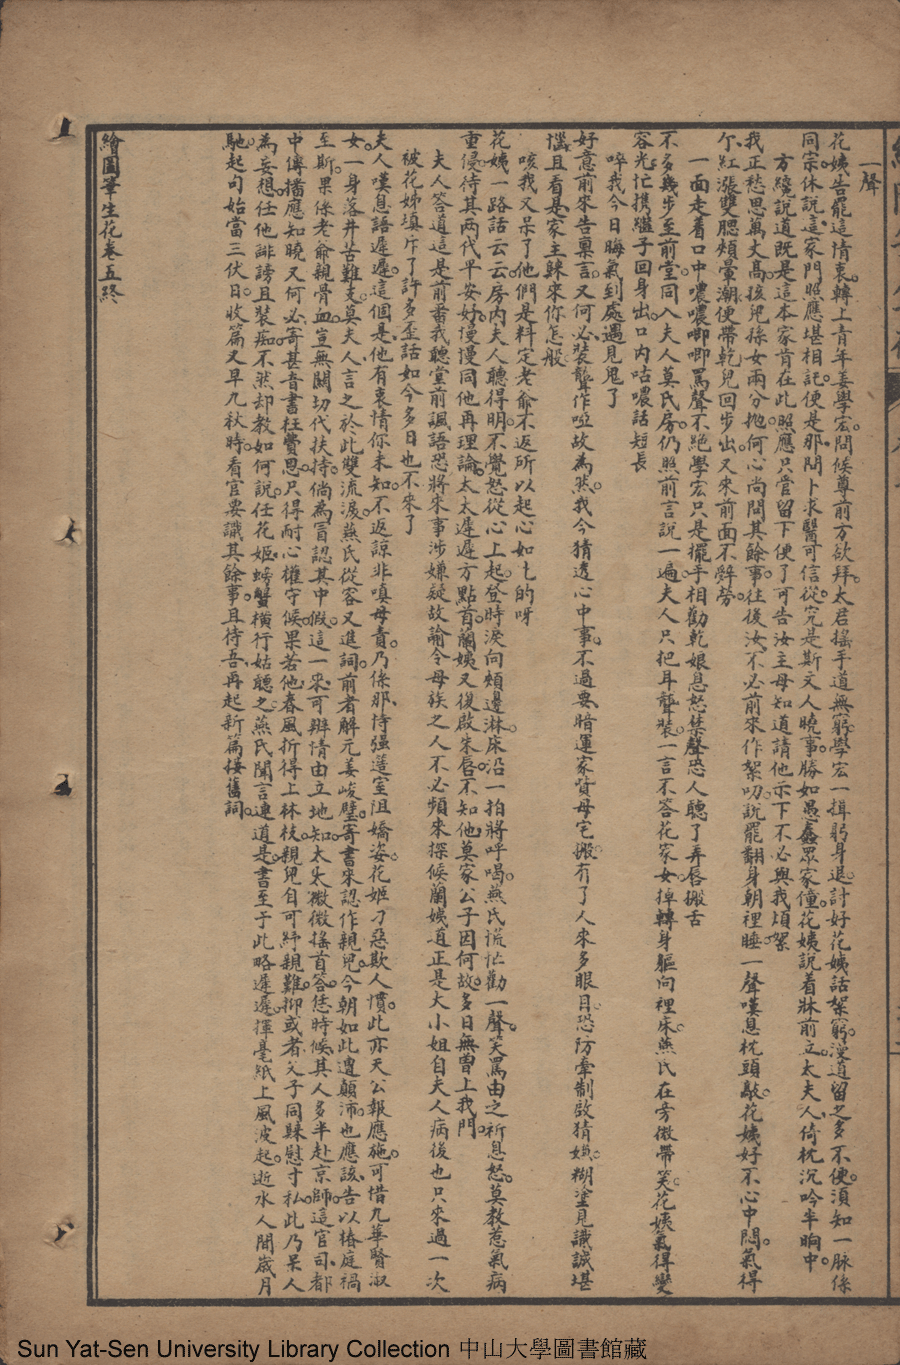 一聲
花姨告罷這情衷。轉上青年姜學宏。問候尊前方欲拜。太君搖手道無窮。學宏一揖躬身退。討好花姨話絮窮。漫道留之多不便。須知一脉係
同宗。休說這家門照應堪相託。便是那問卜求醫可信從。究是斯文人曉事。勝如愚蠢眾家僮。花姨說着牀前立。太夫人倚枕沉吟半晌中。
方纔說道既是這本家肯在此照應只管留下便了可告汝主母知道請他示下不必與我煩絮
我正愁思萬丈高。孩兒孫女兩分抛。何心尚問其餘事。往後汝不必前來作絮叨。說罷翻身朝裡睡。一聲嘆息枕頭敲。花姨好不心中悶。氣得
尔紅漲雙腮頰暈潮。便帶乾兒回步出。又來前面不辭勞。
一面走着口中噥噥唧唧罵聲不絶學宏只是擺手相勸乾娘息怒禁聲恐人聽了弄唇搬舌
不多幾步至前堂。同入夫人莫氏房。仍照前言說一遍。夫人只把耳聾裝。一言不答花家女。掉轉身軀向裡床。燕氏在旁微帶笑。花姨氣得變
容光。忙携繼子回身出。口內咕噥話短長
啐我今日晦氣到處遇見鬼了
好意前來告稟言。又何必裝聾作啞故為然。我今猜透心中事。不過要暗運家貲母宅搬。有了人來多眼目。恐防牽制致猜嫌。糊塗見識誠堪
惱。且看是家主歸來你怎般。
咳我又呆了他們是料定老爺不返所以起心如七的呀
花姨一路話云云。房內夫人聽得明。不覺怒從心上起。登時淚向頰邊淋。床沿一拍將呼喝。燕氏慌忙勸一聲。笑罵由之祈息怒。莫教惹氣病
重侵。待其兩代平安好。慢慢同他再理論。太太遲遲方點首。蘭姨又復啟朱唇。不知他莫家公子因何故。多日無曾上我門。
夫人答道這是前番我聽堂前諷語恐將來事涉嫌疑故諭令母族之人不必頻來探候蘭姨道正是大小姐自夫人病後也只來過一次
被花姊填斥了許多歪話如今多日也不來了
夫人嘆息語遲遲。這個是他有衷情你未知。不返諒非嗔母責。乃係那恃强蘧室阻嬌姿。花姬刁惡欺人慣。此亦天公報應施。可惜九華賢淑
女。一身落井苦難支。莫夫人言之於此雙流淚。燕氏從容又進詞。前者解元姜峻璧。寄書來認作親兒。今朝如此遭顛沛。也應該告以椿庭禍
至斯。果係老爺親骨血。豈無關切代扶持。倘為冒認其中假。這一來可辨情由立地知。太太微微搖首答。恁時候其人多半赴京師。這官司都
中傳播應知曉。又何必寄甚音書枉費思。只得耐心權守候。果若他春風折得上林枝。親兒自可紓親難。抑或者父子同歸慰寸私。此乃呆人
為妄想。任他誹謗且裝痴。不然却教如何說。任花姬螃蟹橫行姑聽之。燕氏聞言連道是。書至于此略遲遲。揮毫紙上風波起。逝水人間歲月
馳。起句始當三伏日。收篇又早九秋時。看官要識其餘事。且待吾再起新篇接舊詞。
繪圖筆生花卷五終
Sun Yat-Sen University Library Collection 中山大學圖書館藏